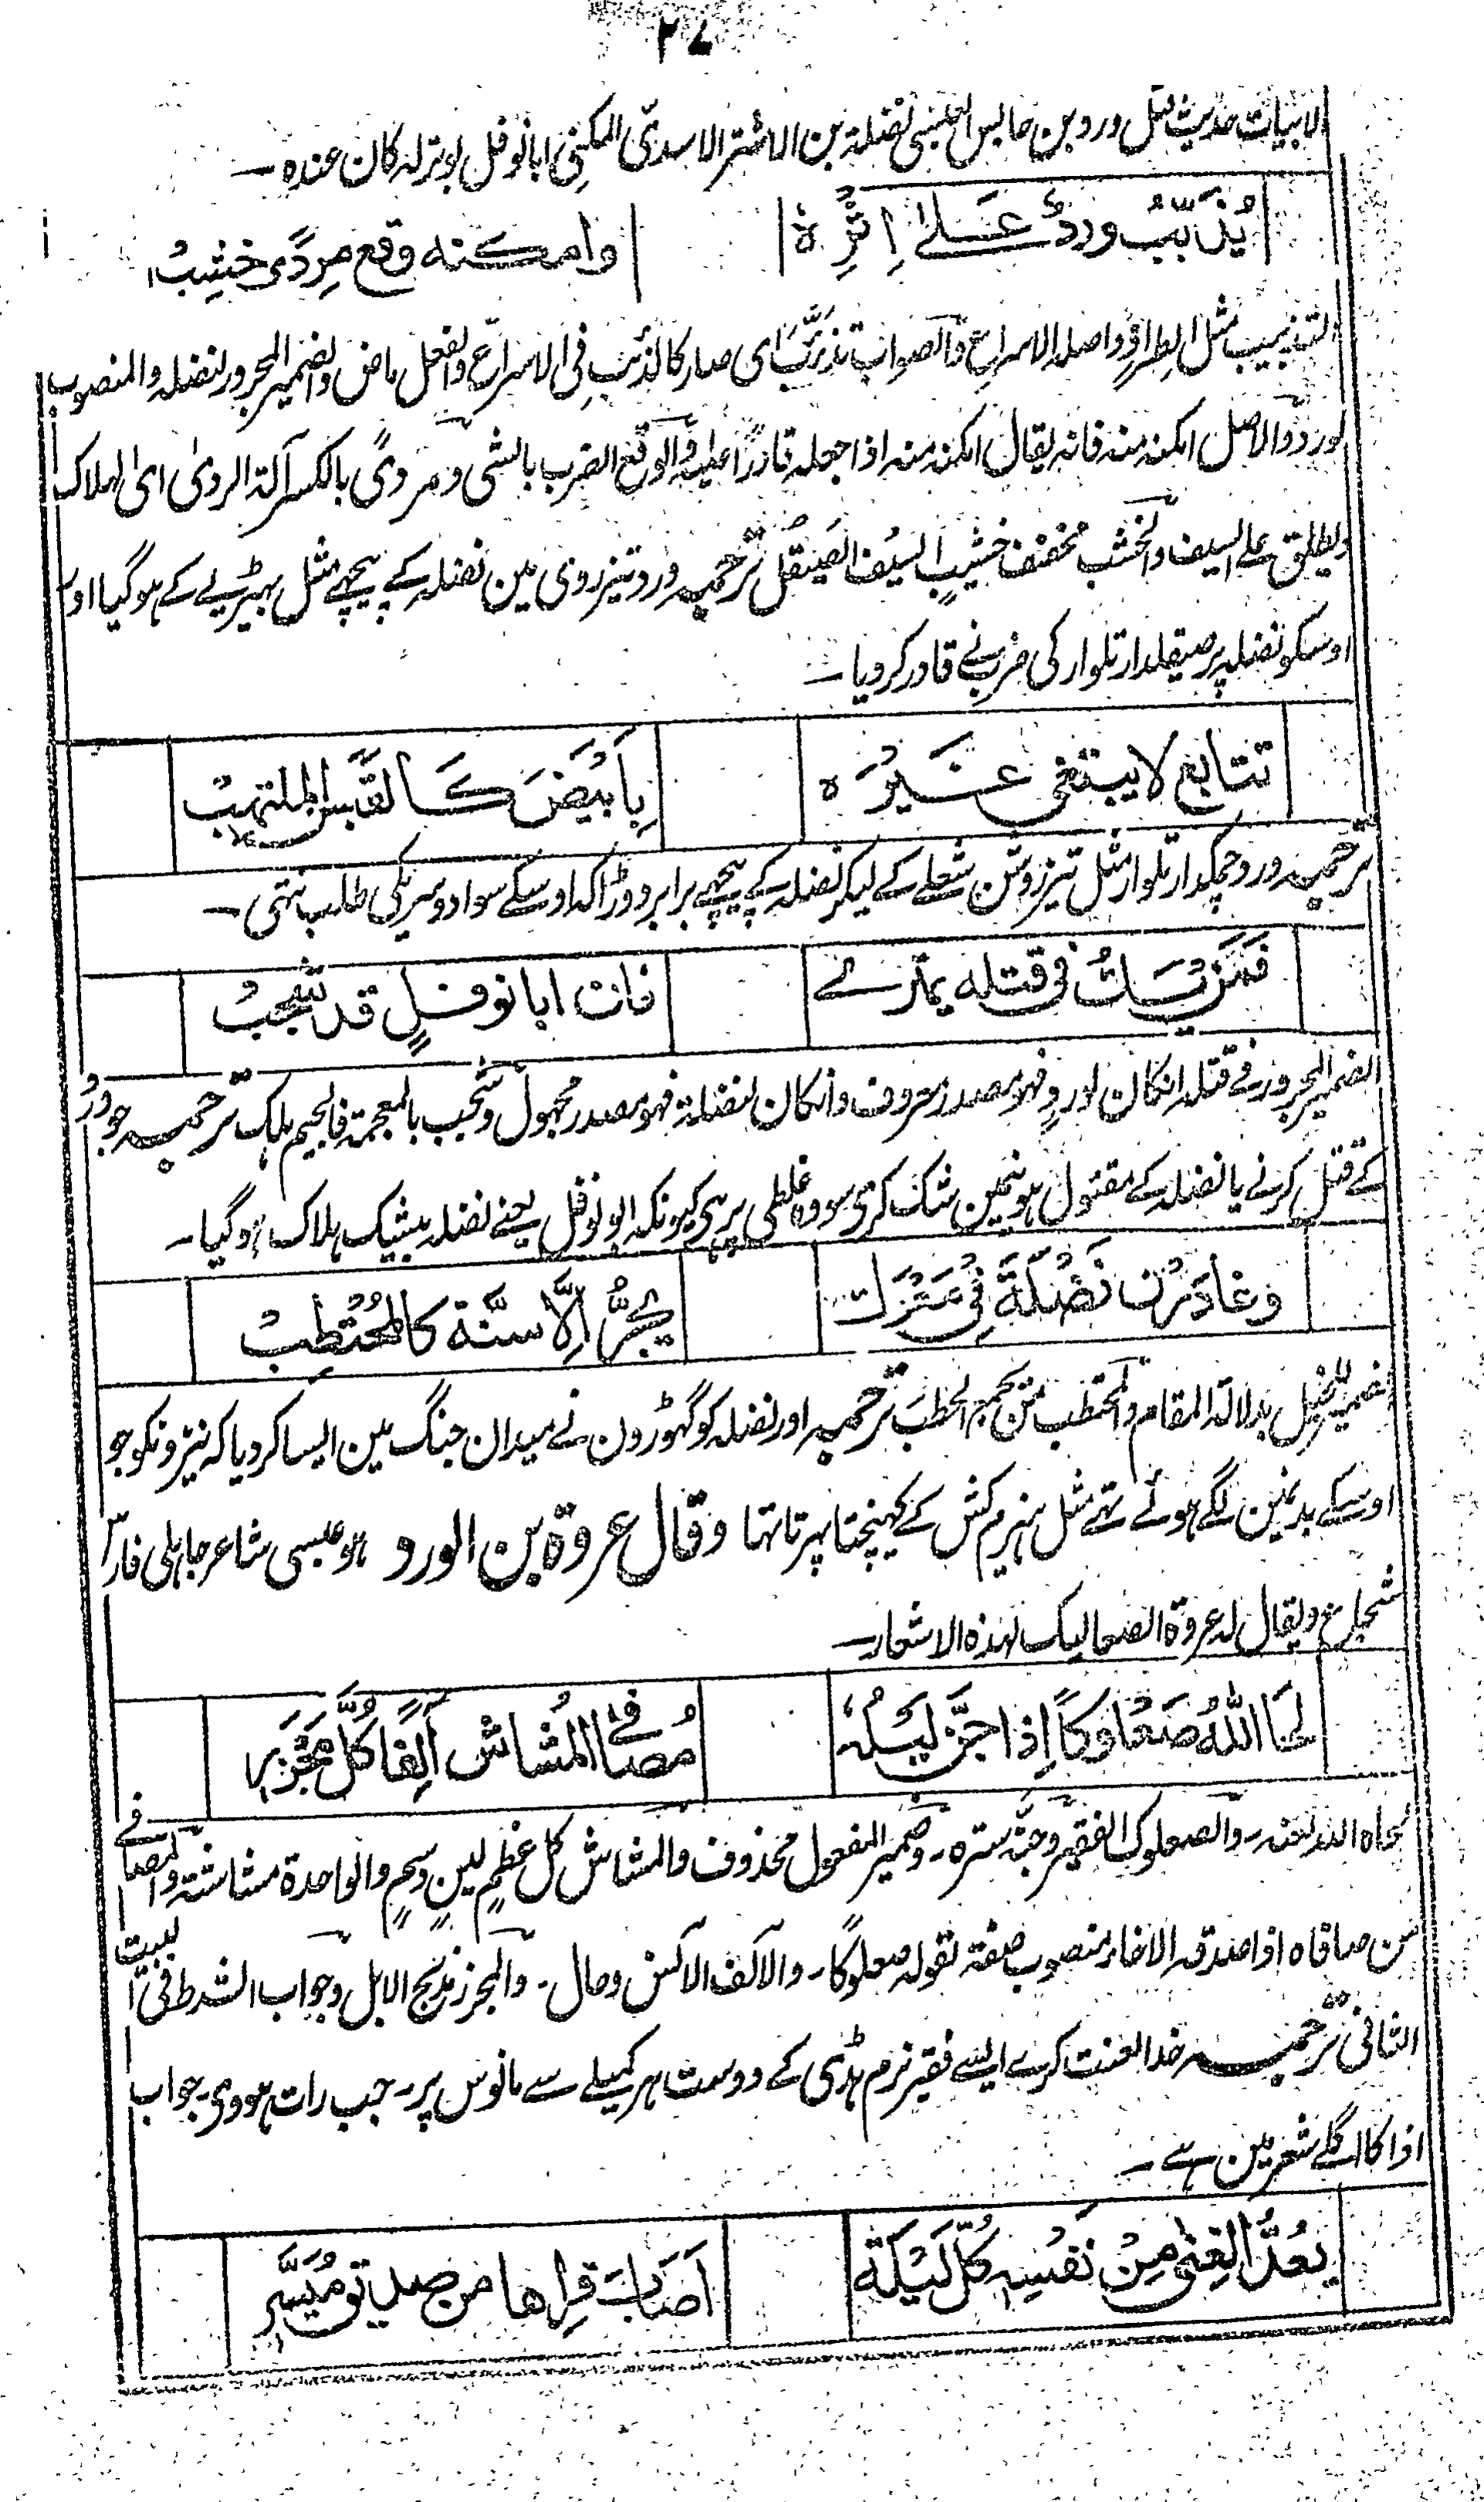 ٢٧
الابیات حدیث قتل ورد بن حابس العبسی نضلة بن الاشتر الاسدیّ المکنیٰ ابا نوفل لوتر لہ کان عندہ ـ
یُذَبِّبُ وردٌ عَلٰے اِثْرِہٖ وامکنہ وقع مِردًی خشِبُ
التذبیب مثل الطراؤ واصلہ الاسراع والصواب تذءّبَ ای صار کالذئب فی الاسراع والفعل ماض والضمیر المجرور لنضلہ والمنصوب
لوردٍ والاصل امکنہ منہ فانہ یقال امکنہ منہ اذا جعلہ قادرًا علیہ والوقع الضرب بالشی ومردیً بالکسر آلة الردیٰ ای الہلاک
ویطلق علے السیف والخشب مخفف خشیبِ السیُف الصیقل ترجمہ ورد تیز روی مین نضلہ کے پیچھے مثل بہیڑیے کے ہو گیا اور
اوسکو نضلہ پر صیقلدار تلوار کی ضرب نے قادر کر دیا ـ
تتابع لا یبتغی غَیرُہ بِاَبیَضَ کَالقَبس الملتہبُ
ترجمہ ورد چمکدار تلوار مثل تیز روشن شعلے کے لیکر نضلہ کے پیچھے برابر دوڑا کہ اوسکے سوا دوسریکی طلب نتہی ـ
فَمَن یَکُ فی قتلہ یمتری فان ابا نوفلٍ قد شجُبُ
الضمیر المجرور فے قتلہ انکان لوردٍ فہو مصدر معروف وانکان لنضلة فہو مصدر مجہول وشجب بالمعجمة فالجیم ہلک ترجمہ جو ورد
کے قتل کرنے یا نضلہ کے مقتول ہونیمین شک کری سو وہ غلطی پر ہی کیونکہ ابو نوفل یعنے نضلہ بیشک ہلاک ہو گیا ـ
وغادَرْنَ نَضْلَةَ فِی مَعْرَک یَجُرُّ الاَسِنَّة کالمُحُتَطِبُ
الضمیر للخیل بدلالة المقام والمحتطب من یجمع الحطب ترجمہ اور نضلہ کو گہوڑون نے میدان جنگ مین ایسا کر دیا کہ نیزونکو جو
اوسکے بدنمین لگے ہوئے تہے مثل ہیزم کش کے کہینچتا پہرتا تہا وقال عروة بن الورد ہو عبسی شاعر جاہلی فارس
شجاع ویقال لہ عروة الصعالیک لہذہ الاشعار ـ
لَحَا اللہُ صَعْلوکاً اِذا جَنَّ لَیلُہٗ مُصافِی المُشاشِ آلِفًا کُلَّ مَجْزَرِ
لحاہ اللہ لعنہ ـ والصعلوک الفقیر وجنّہ سترہ ـ وضمیر المفعول محذوف والمشاش کل عظمٍ لینٍ دسمٍ والواحدة مشاشتہ والمصافے
من صافاہ اذا صدقہ الاخاء منصوب صفة لقولہ صعلوکًا ـ والآلف الآنس وحال ـ والمجزر مذبح الابل وجواب الشرط فی البیت
الثانی ترجمہ خدا لعنت کرے ایسے فقیر نرم ہڈی کے دوست ہر کمیلے سے مانوس پر ـ جب رات ہووی ـ جواب
اذا کا اگلے شعر مین ہے ـ
یَعُدُّ الغِنٰی مِنْ نَفْسِہٖ کُلَّ لَیْلَةٍ اَصَابَ قِراھا من صدیقٍ مُیَسَّرِ